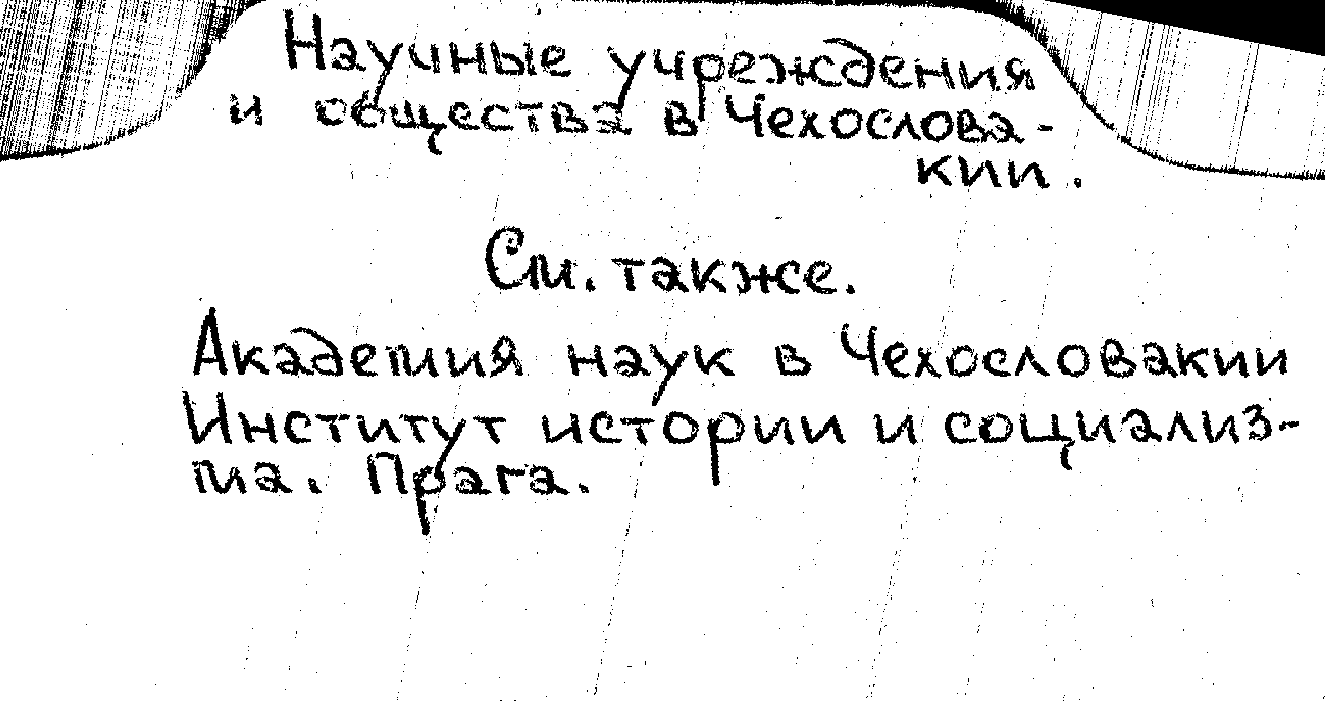 Научные учреждения
и общества в Чехослова-
кии.
См. также.
Академия наук в Чехословакии
Институт истории и социализ-
ма. Прага.